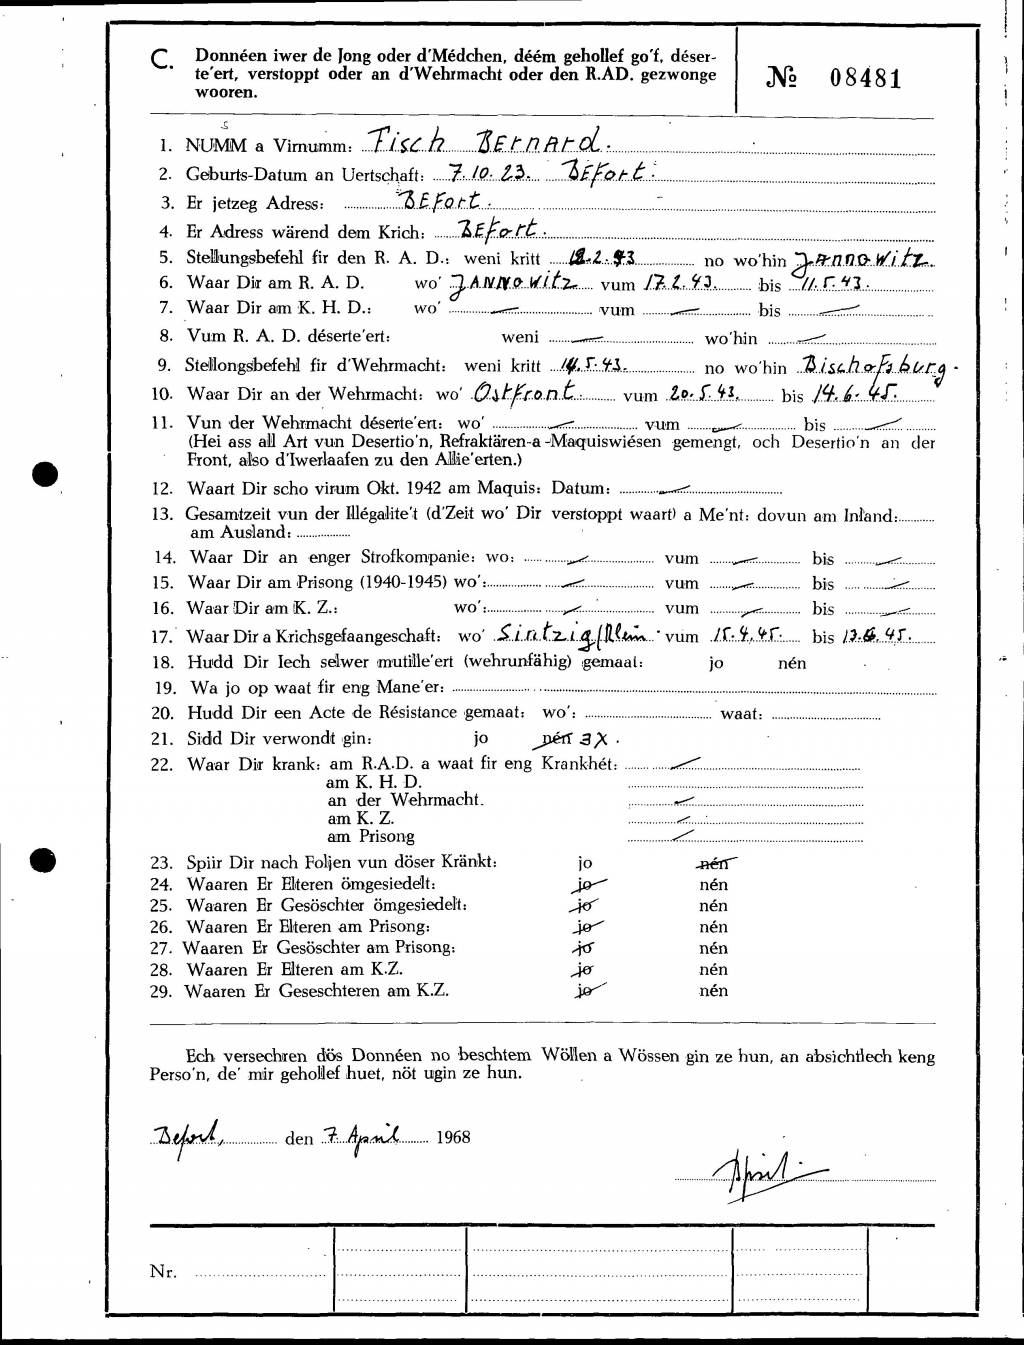 C. Donnéen iwer de Jong oder d'Médchen, déém gehollef go'f, déser-
te'ert, verstoppt oder an d'Wehrmacht oder den R.AD. gezwonge
wooren.
№ 08481
1. NUMM a Virnumm: Fisch BErnArd.
2. Geburts-Datum an Uertschaft: 7.10.23. BEfort.
3. Er jetzeg Adress: BEfort.
4. Er Adress wärend dem Krich: BEfort.
5. Stellungsbefehl fir den R. A. D.: weni kritt 12.2.43 no wo'hin JAnnowitz.
6. Waar Dir am R. A. D. wo' JANNOWitz vum 17.2.43. bis 11.5.43.
7. Waar Dir am K. H. D.: wo' — vum — bis —
8. Vum R. A. D. déserte'ert: weni — wo'hin —
9. Stellongsbefehl fir d'Wehrmacht: weni kritt 14.5.43. no wo'hin Bischofsburg.
10. Waar Dir an der Wehrmacht: wo' Ostfront. vum 20.5.43. bis 14.6.45.
11. Vun der Wehrmacht déserte'ert: wo' — vum — bis —
(Hei ass all Art vun Desertio'n, Refraktären-a-Maquiswiésen gemengt, och Desertio'n an der
Front, also d'Iwerlaafen zu den Allie'erten.)
12. Waart Dir scho virum Okt. 1942 am Maquis: Datum: —
13. Gesamtzeit vun der Illégalite't (d'Zeit wo' Dir verstoppt waart) a Me'nt: dovun am Inland:
am Ausland:
14. Waar Dir an enger Strofkompanie: wo: — vum — bis —
15. Waar Dir am Prisong (1940-1945) wo': — vum — bis —
16. Waar Dir am K. Z.: wo': — vum — bis —
17. Waar Dir a Krichsgefaangeschaft: wo' Sintzig/Rhein. vum 15.4.45. bis 13.6.45.
18. Hudd Dir Iech selwer mutille'ert (wehrunfähig) gemaat: jo nén
19. Wa jo op waat fir eng Mane'er:
20. Hudd Dir een Acte de Résistance gemaat: wo': waat:
21. Sidd Dir verwondt gin: jo nén 3X.
22. Waar Dir krank: am R.A.D. a waat fir eng Krankhét: —
am K. H. D.
an der Wehrmacht. —
am K. Z. —
am Prisong —
23. Spiir Dir nach Foljen vun döser Kränkt: jo nén
24. Waaren Er Elteren ömgesiedelt: jo nén
25. Waaren Er Gesöschter ömgesiedelt: jo nén
26. Waaren Er Elteren am Prisong: jo nén
27. Waaren Er Gesöschter am Prisong: jo nén
28. Waaren Er Elteren am K.Z. jo nén
29. Waaren Er Geseschteren am K.Z. jo nén
Ech versechren dös Donnéen no beschtem Wöllen a Wössen gin ze hun, an absichtlech keng
Perso'n, de' mir gehollef huet, nöt ugin ze hun.
Befort, den 7. April 1968
Nr.